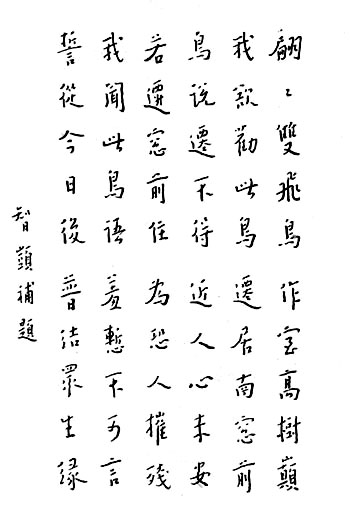 翩〻雙飛鳥 作室高樹巔
我欲勸此鳥 遷居南窓前
鳥說遷不得 近人心未安
若遷窓前住 為恐人摧殘
我聞此鳥語 羞慙不可言
誓從今日後 普結眾生緣
智顗補題